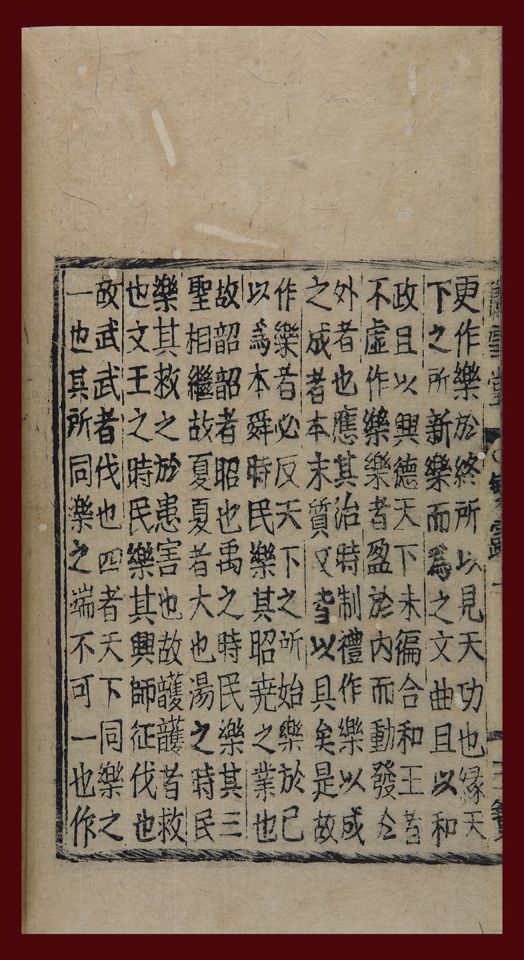 雪堂
更作樂於終所以見天功也緣天
下之所新樂而爲之文曲且以和
政且以興德天下未徧合和王者
不虛作樂樂者盈於内而動發於
外者也應其治時制禮作樂以成
之成者本末質文皆以具矣是故
作樂者必反天下之所始樂於已
以爲本舜時民樂其昭堯之業也
故韶韶者昭也禹之時民樂其三
聖相繼故夏夏者大也湯之時民
樂其救之於患害也故護護者救
也文王之時民樂其興師征伐也
故武武者伐也四者天下同樂之
一也其所同樂之端不可一也作